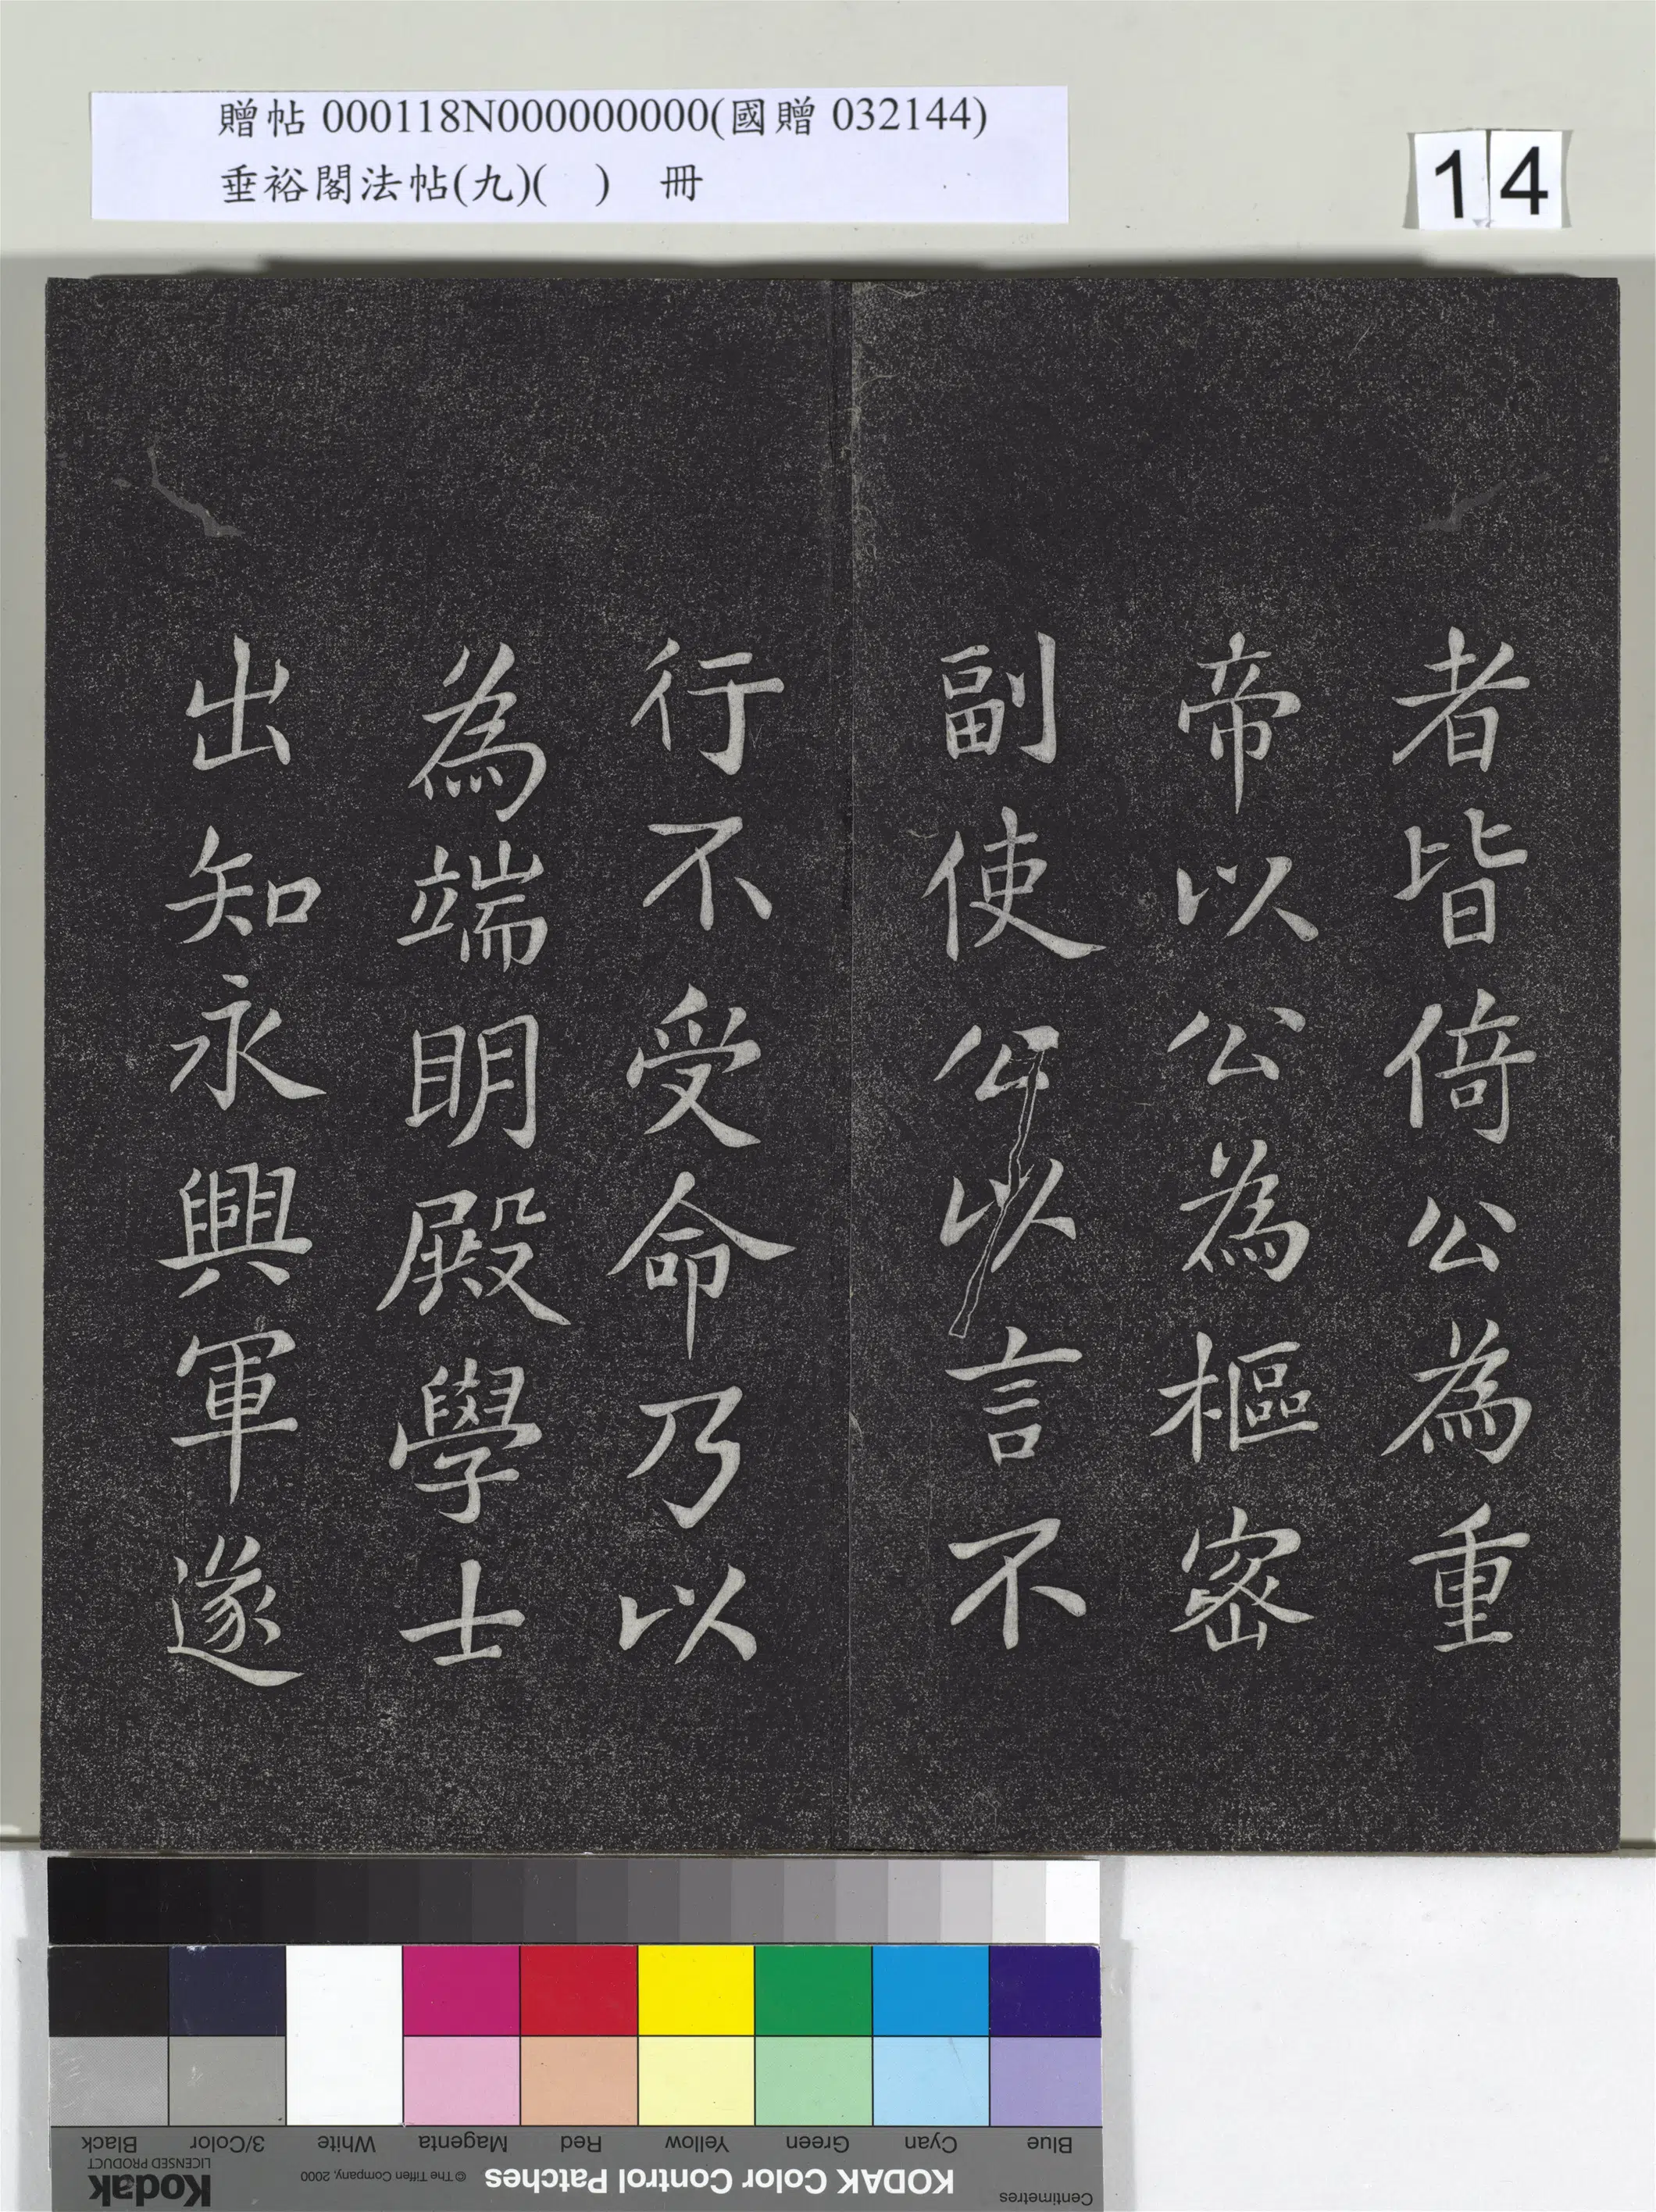 贈帖 000118N000000000(國贈 032144)
垂裕閣法帖(九)(　)　冊
14
者皆倚公為重
帝以公為樞密
副使公以言不
行不受命乃以
為端明殿學士
出知永興軍遂
Blue Cyan Green Yellow Red Magenta White 3/Color Black
Centimetres KODAK Color Control Patches © The Tiffen Company, 2000 Kodak LICENSED PRODUCT